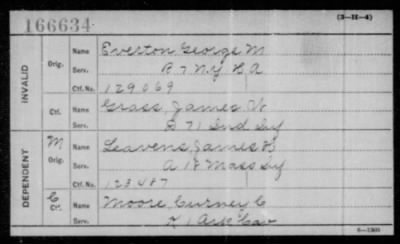 166634
(3-H-4)
INVALID
Orig.
Name Everton George M
Serv. B 7 N.Y. H A
Ctf. No. 129069
Ctf.
Name Grass, James W
Serv. B 71 Ind Inf
DEPENDENT
M
Orig.
Name Leavens, James H
Serv. A 18 Mass Inf
Ctf. No. 123487
C
Ctf.
Name Moore Curney C
Serv. K 1 Ark Cav